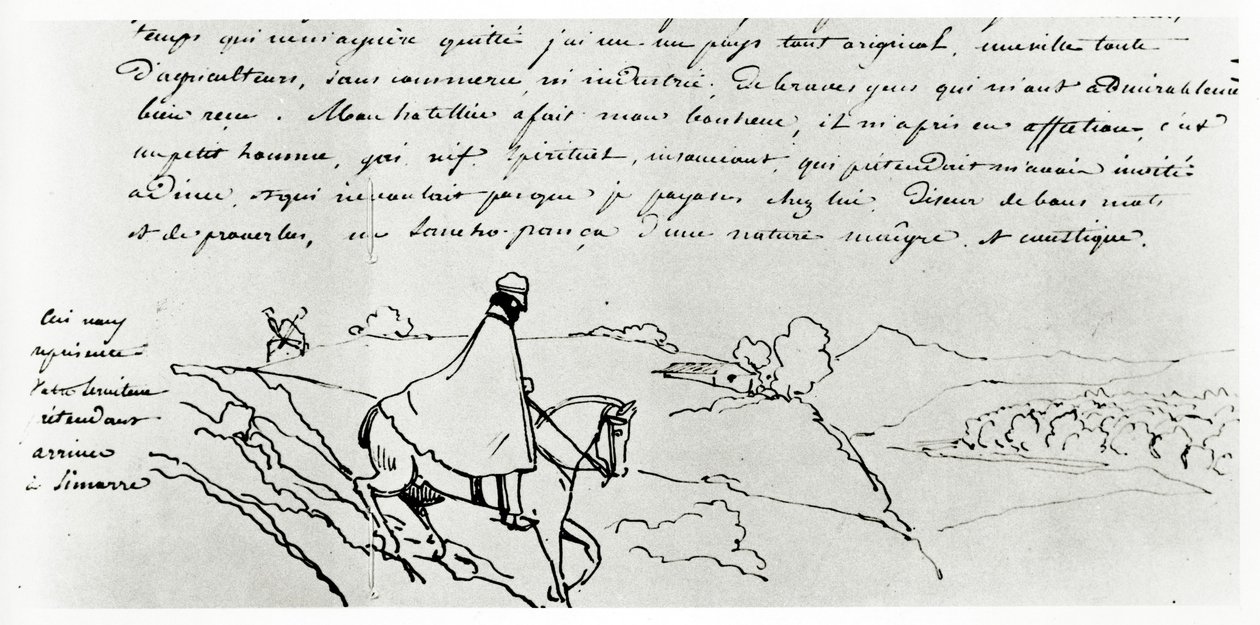 temps qui m'est quitté j'ai vu un pays tout original, une ville toute
d'agriculteurs, sans commerce, ni industrie, de braves gens qui m'ont admirablement
bien reçu. Mon hotellier a fait mon bonheur, il m'a pris en affection, c'est
un petit homme, gai, vif spirituel, insouciant, qui prétendait m'avoir invité
a diner, et qui ne voulait pas que je payasse chez lui. Diseur de bons mots
et de proverbes, un Sancho-pança d'une nature maigre et caustique.
Ceci nous
représente
Votre Serviteur
prétendant
arriver
à Simorre